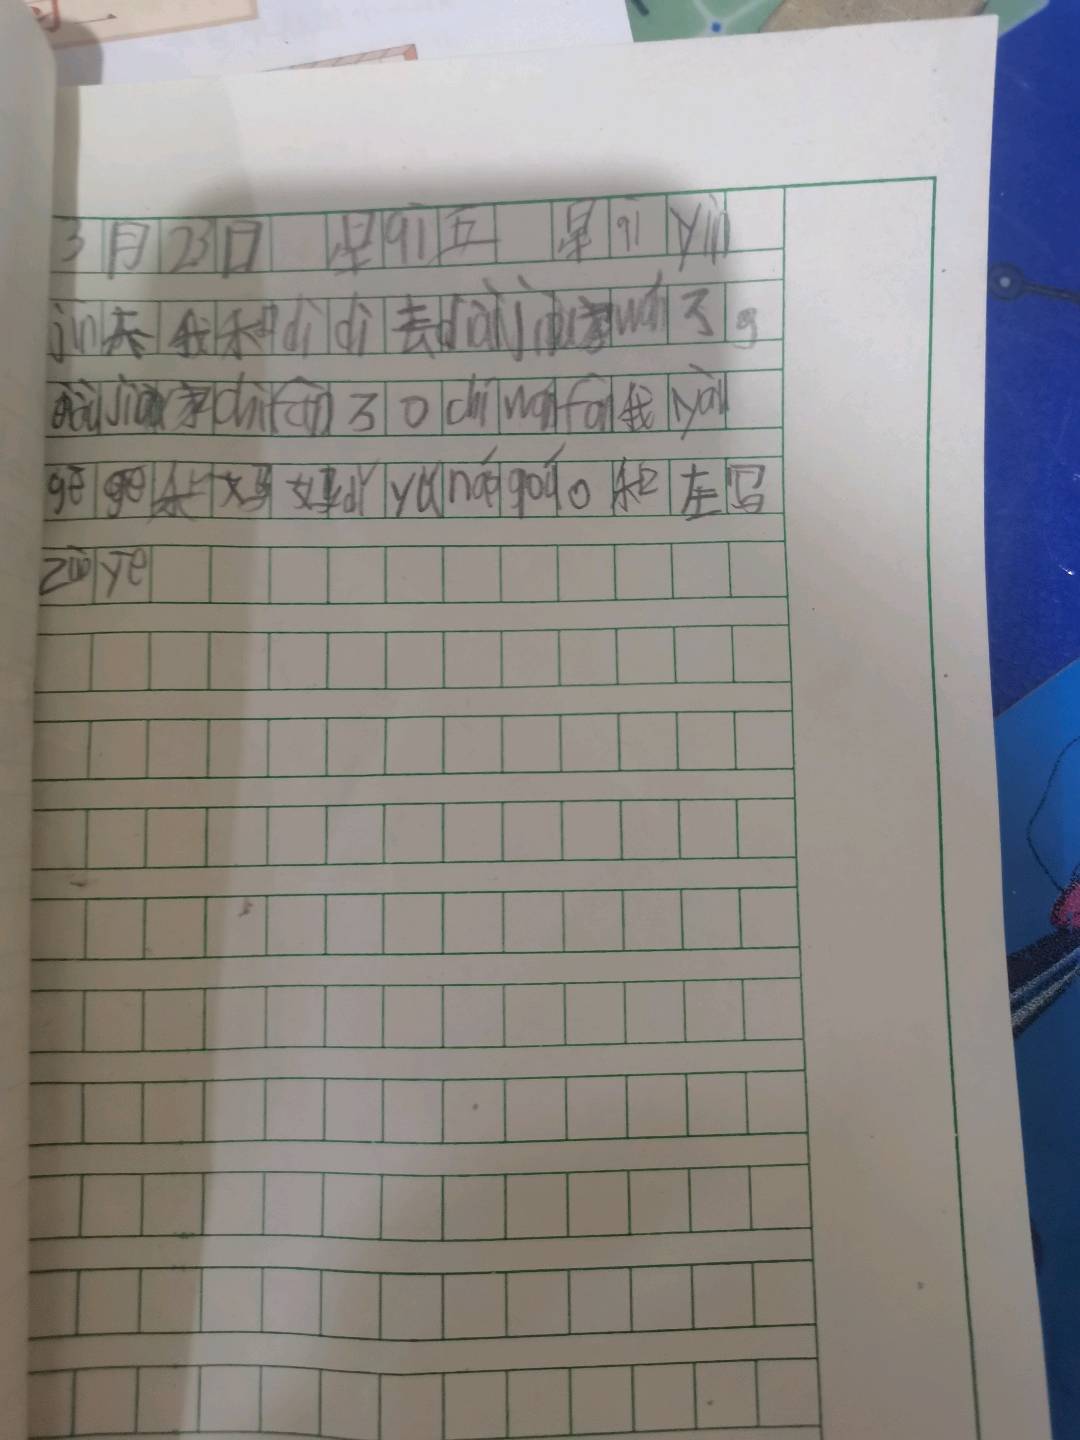 3月23日 星qī五 星qī yīn
jīn天我和dì dì去dà jiù家wán了。
dà jiù家chī fàn了。chī wán fàn我 yào
gē ge 和妈妈dǐ yǔ náo gāo。和 左写
zuò yè